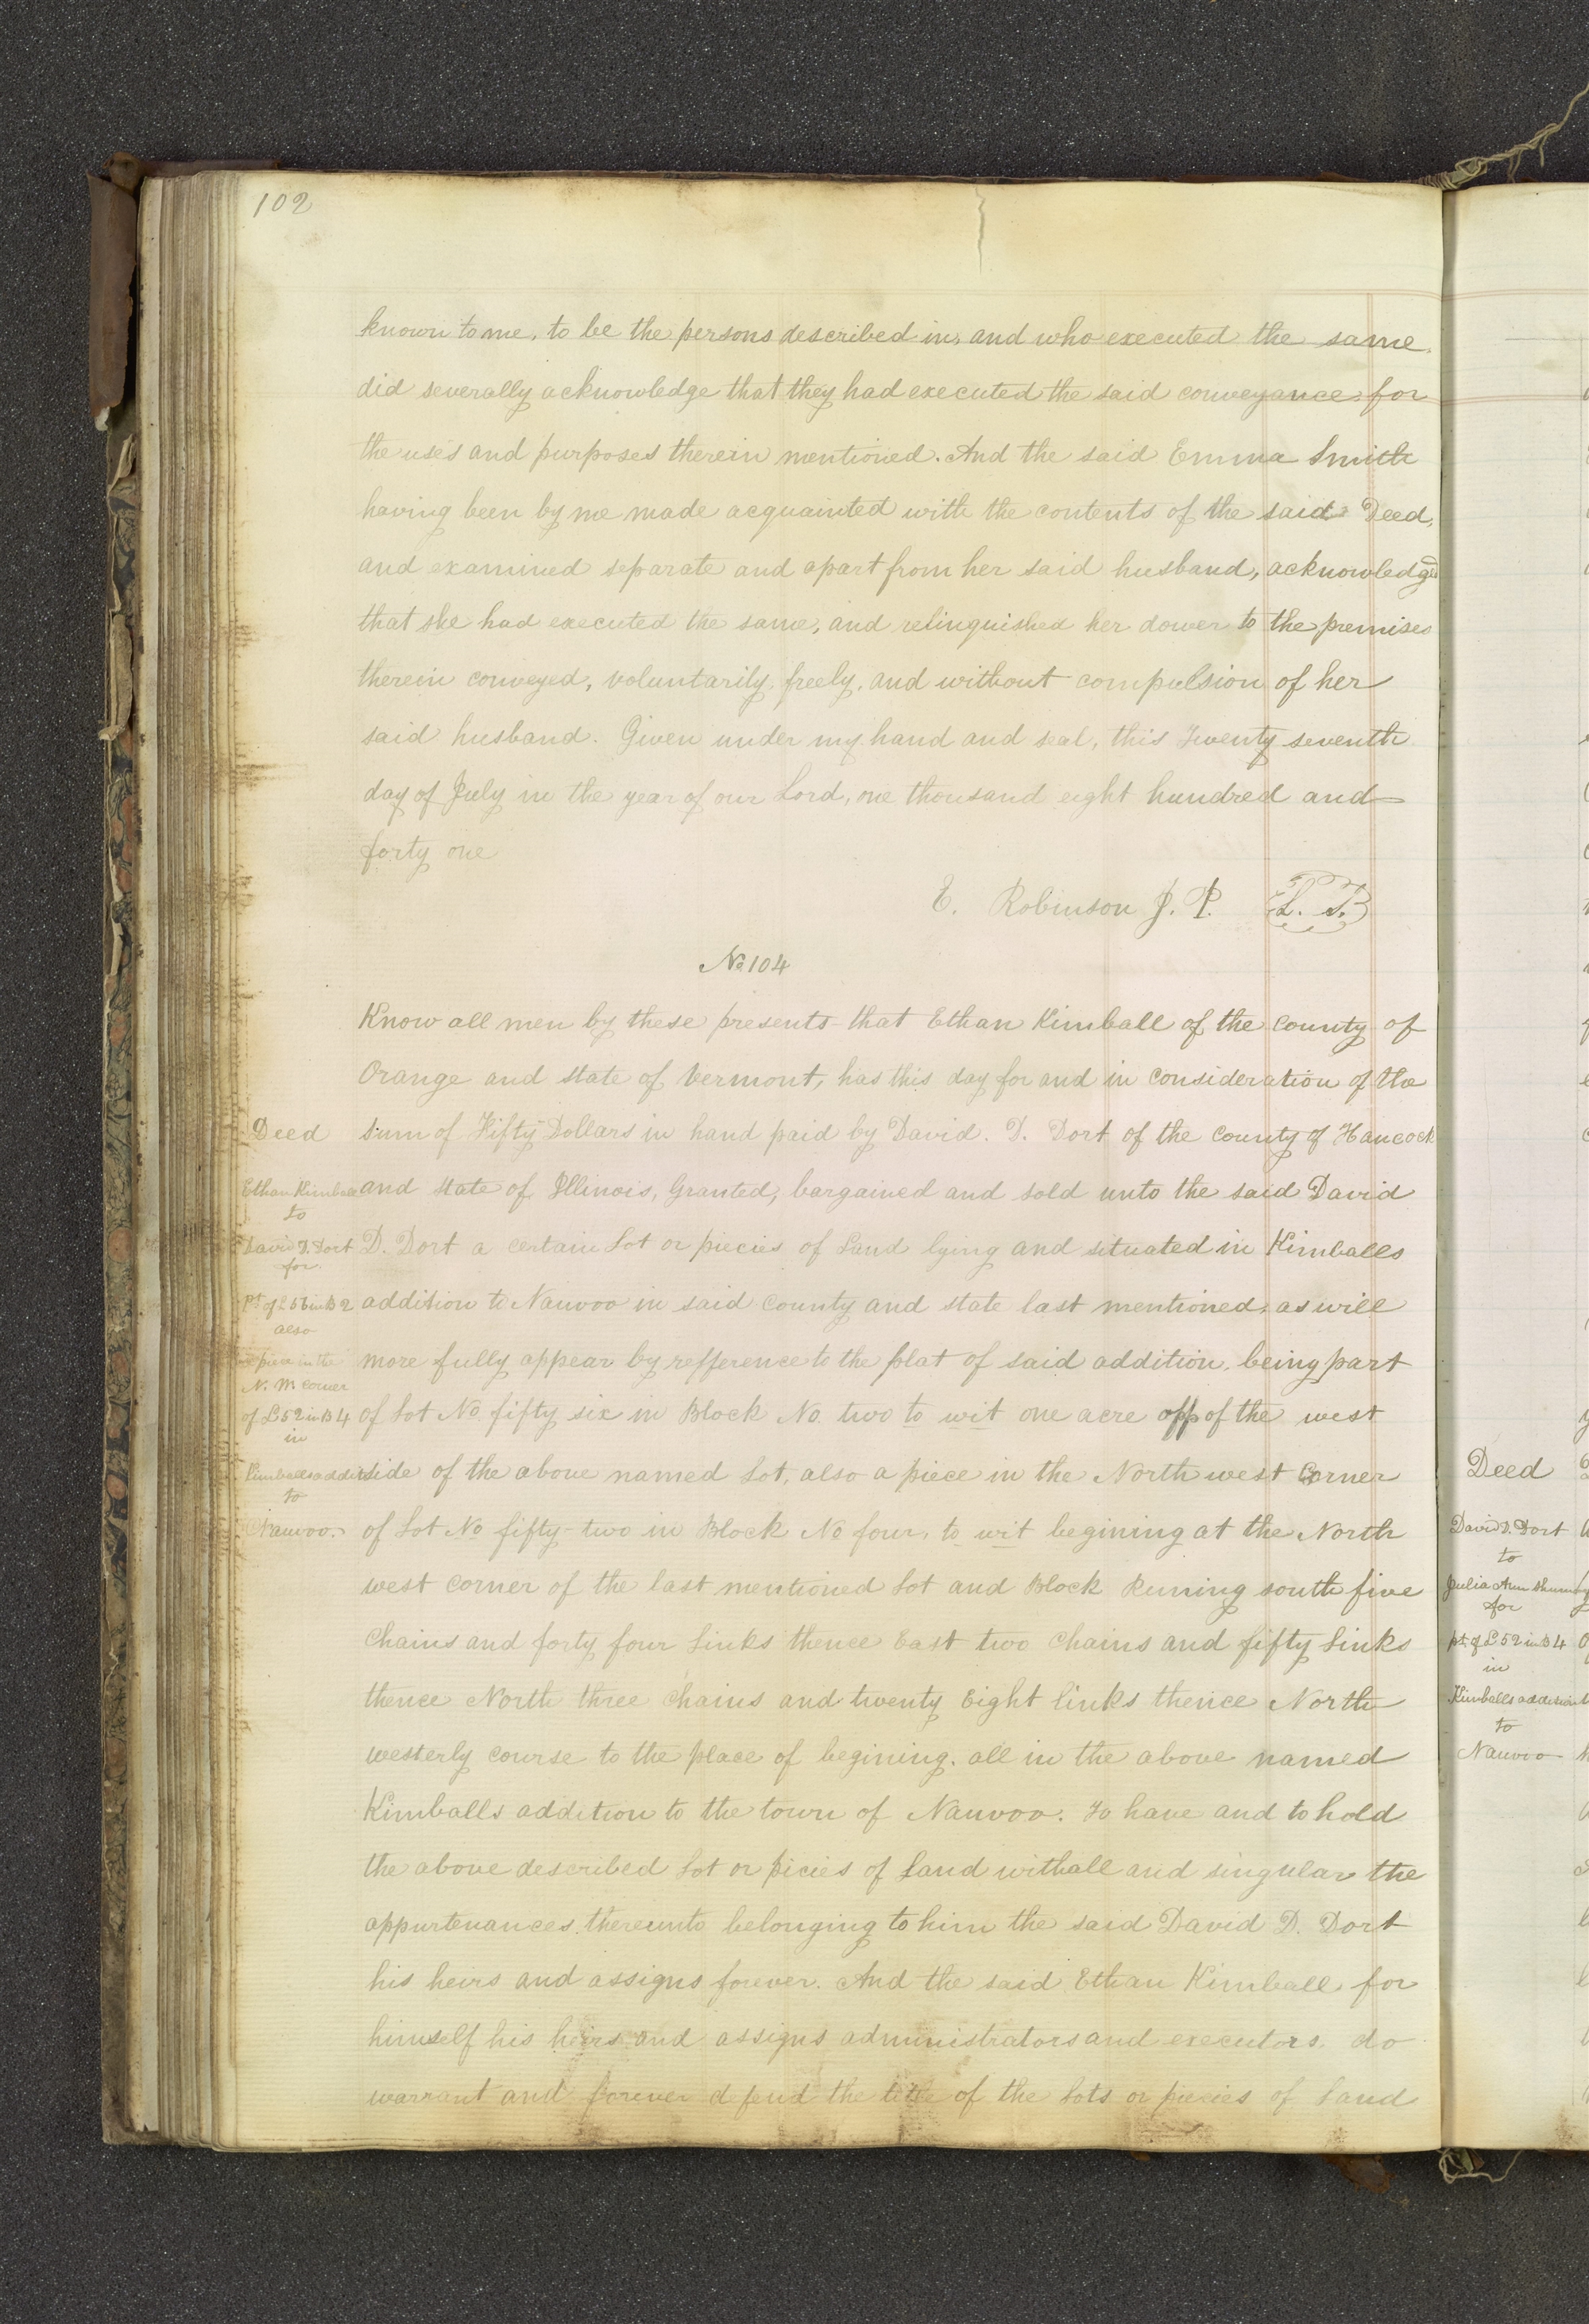 102
known to me, to be the persons described in, and who executed the same,
did severally acknowledge that they had executed the said conveyance for
the uses and purposes therein mentioned. And the said Emma Smith
having been by me made acquainted with the contents of the said Deed,
and examined separate and apart from her said husband, acknowledged
that she had executed the same, and relinquished her dower to the premises
therein conveyed, voluntarily, freely, and without compulsion of her
said husband. Given under my hand and seal, this Twenty seventh
day of July in the year of our Lord, one thousand eight hundred and
forty one
E. Robinson J. P. L. S.
No 104
Know all men by these presents that Ethan Kimball of the County of
Orange and State of Vermont, has this day for and in consideration of the
sum of Fifty Dollars in hand paid by David. D. Dort of the County of Hancock
and state of Illinois, Granted, bargained and sold unto the said David
D. Dort a certain Lot or piecies of Land lying and situated in Kimballs
addition to Nauvoo in said County and state last mentioned, as will
more fully appear by refference to the plat of said addition, being part
of Lot No. fifty six in Block No. two to wit one acre opp of the west
side of the above named Lot, also a piece in the North west Corner
of Lot No fifty-two in Block No four, to wit begining at the North
west corner of the last mentioned Lot and Block Runing south five
Chains and forty four Links thence East two Chains and fifty Links
thence North three Chains and twenty Eight links thence North
westerly course to the place of begining. all in the above named
Kimballs addition to the town of Nauvoo. To have and to hold
the above described Lot or picies of Land withall and singular the
appurtenances, thereunto belonging to him the said David D. Dort
his heirs and assigns forever. And the said Ethan Kimball for
himself his heirs and assigns administrators and executors, do
warrant and forever defend the title of the Lots or piecies of Land
Deed
Ethan Kimball
to
David D. Dort
for
pt of L 56 in B 2
also
a piece in the
N. W. Corner
of L 52 in B 4
in
Kimballs addition
to
Nauvoo.
Deed
David D. Dort
to
Julia Ann
for
pt of L 52 in B 4
in
Kimballs addition
to
Nauvoo